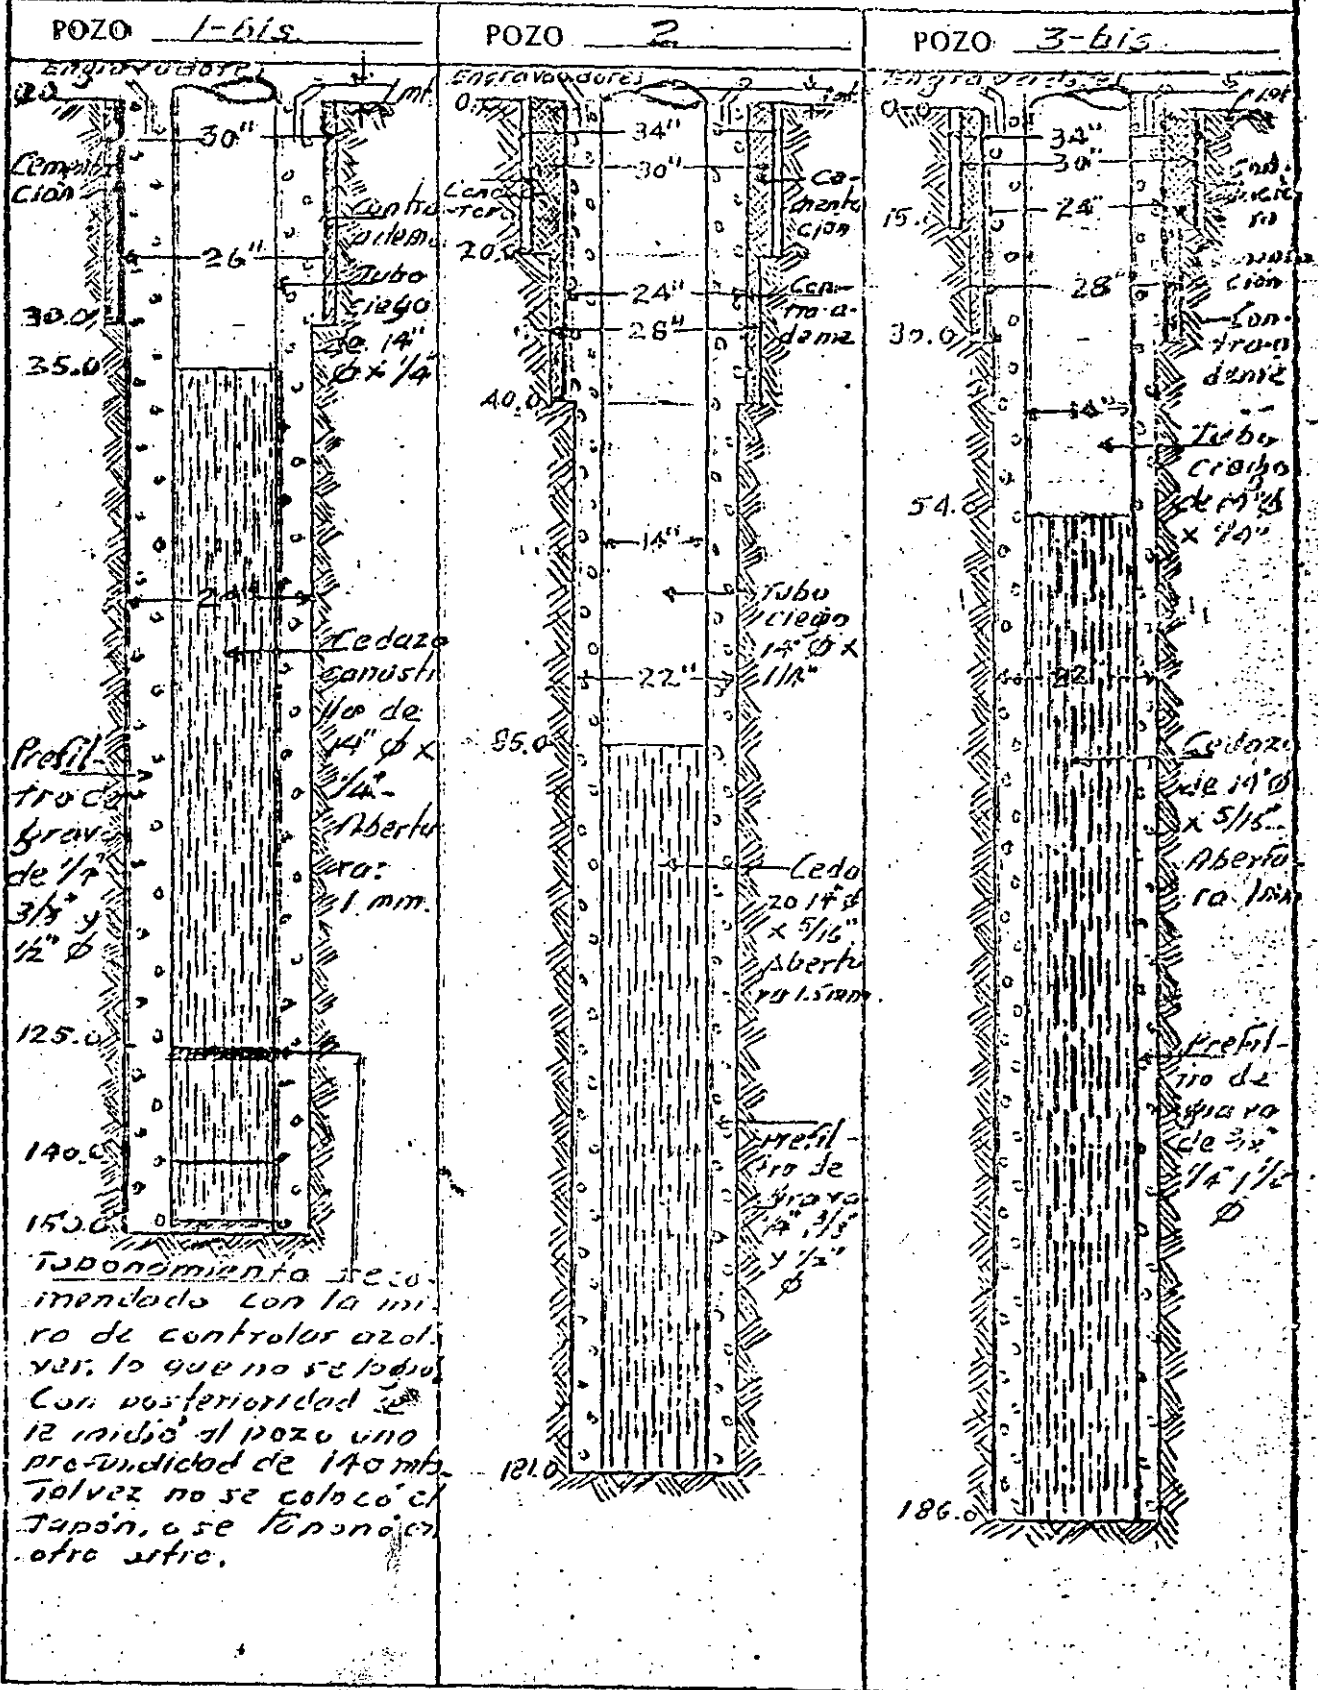 POZO 1-bis.
Engravadores
0.0
1 mt.
30"
Cementa
ción
Contra
ademe
26"
Tubo
ciego
de 14"
Ø x 1/4"
30.0
35.0
24"
Cedazo
canasti
llo de
14" Ø x
1/4"-
Abertu
ra:
1 mm.
Prefil-
tro
grav
de 1/4"
3/8" y
1/2" Ø
125.0
140.0
150.0
Taponamiento reco-
mendado con la mi-
ra de controlar azol-
ves, lo que no se logró
Con posterioridad se
le midió al pozo una
profundidad de 140 mts.
Talvez no se colocó el
Tapón, o se taponó en
otro sitio.
POZO 2
Engravadores
0.0
1 mt.
34"
30"
Ce-
menta
ción
20.0
24"
Con-
tra-a-
deme
28"
40.0
14"
Tubo
ciego
14" Ø x
1/4"
22"
85.0
Ceda
zo 14" Ø
x 5/16"
Abertu
ra 1.5 mm.
Prefil-
tro de
grava
1/4", 3/8"
y 1/2"
Ø
181.0
POZO 3-bis
Engravadores
0.0
1 mt
34"
30"
15.
24"
ción
28"
30.0
Con-
tra-a
deme
14"
Tubo
ciego
de 14" Ø
x 1/4"
54.0
22
Cedazo
de 14" Ø
x 5/16"
Abertu-
ra
Prefil-
tro de
grava
de 3/8"
1/4" 1/2"
Ø
186.0